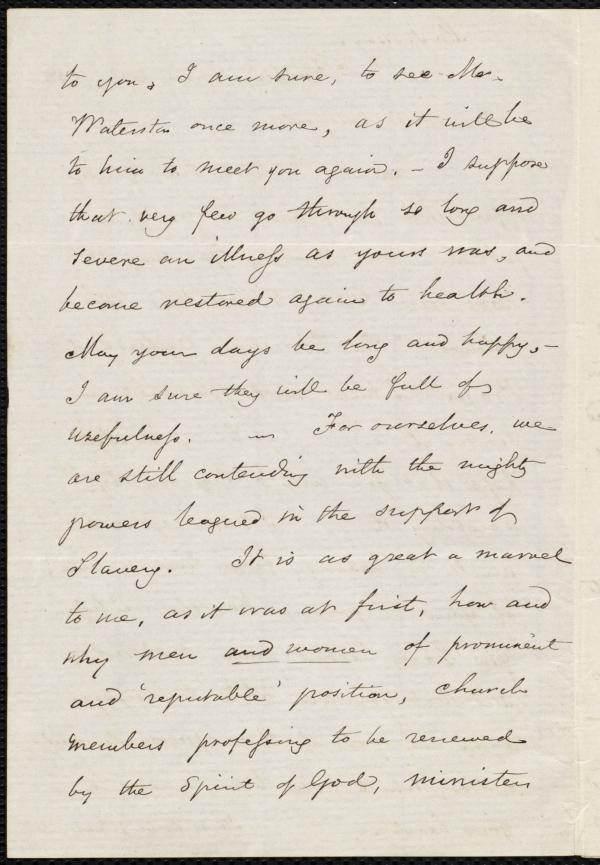 to you, I am sure, to see Mr.
Waterston once more, as it will be
to him to meet you again. – I suppose
that very few go through so long and
severe an illness as yours was, and
become restored again to health.
May your days be long and happy, –
I am sure they will be full of
usefulness. — For ourselves, we
are still contending with the mighty
powers leagued in the support of
Slavery. It is as great a marvel
to me, as it was at first, how and
why men and women of prominent
and 'reputable' position, church
members professing to be renewed
by the Spirit of God, ministers